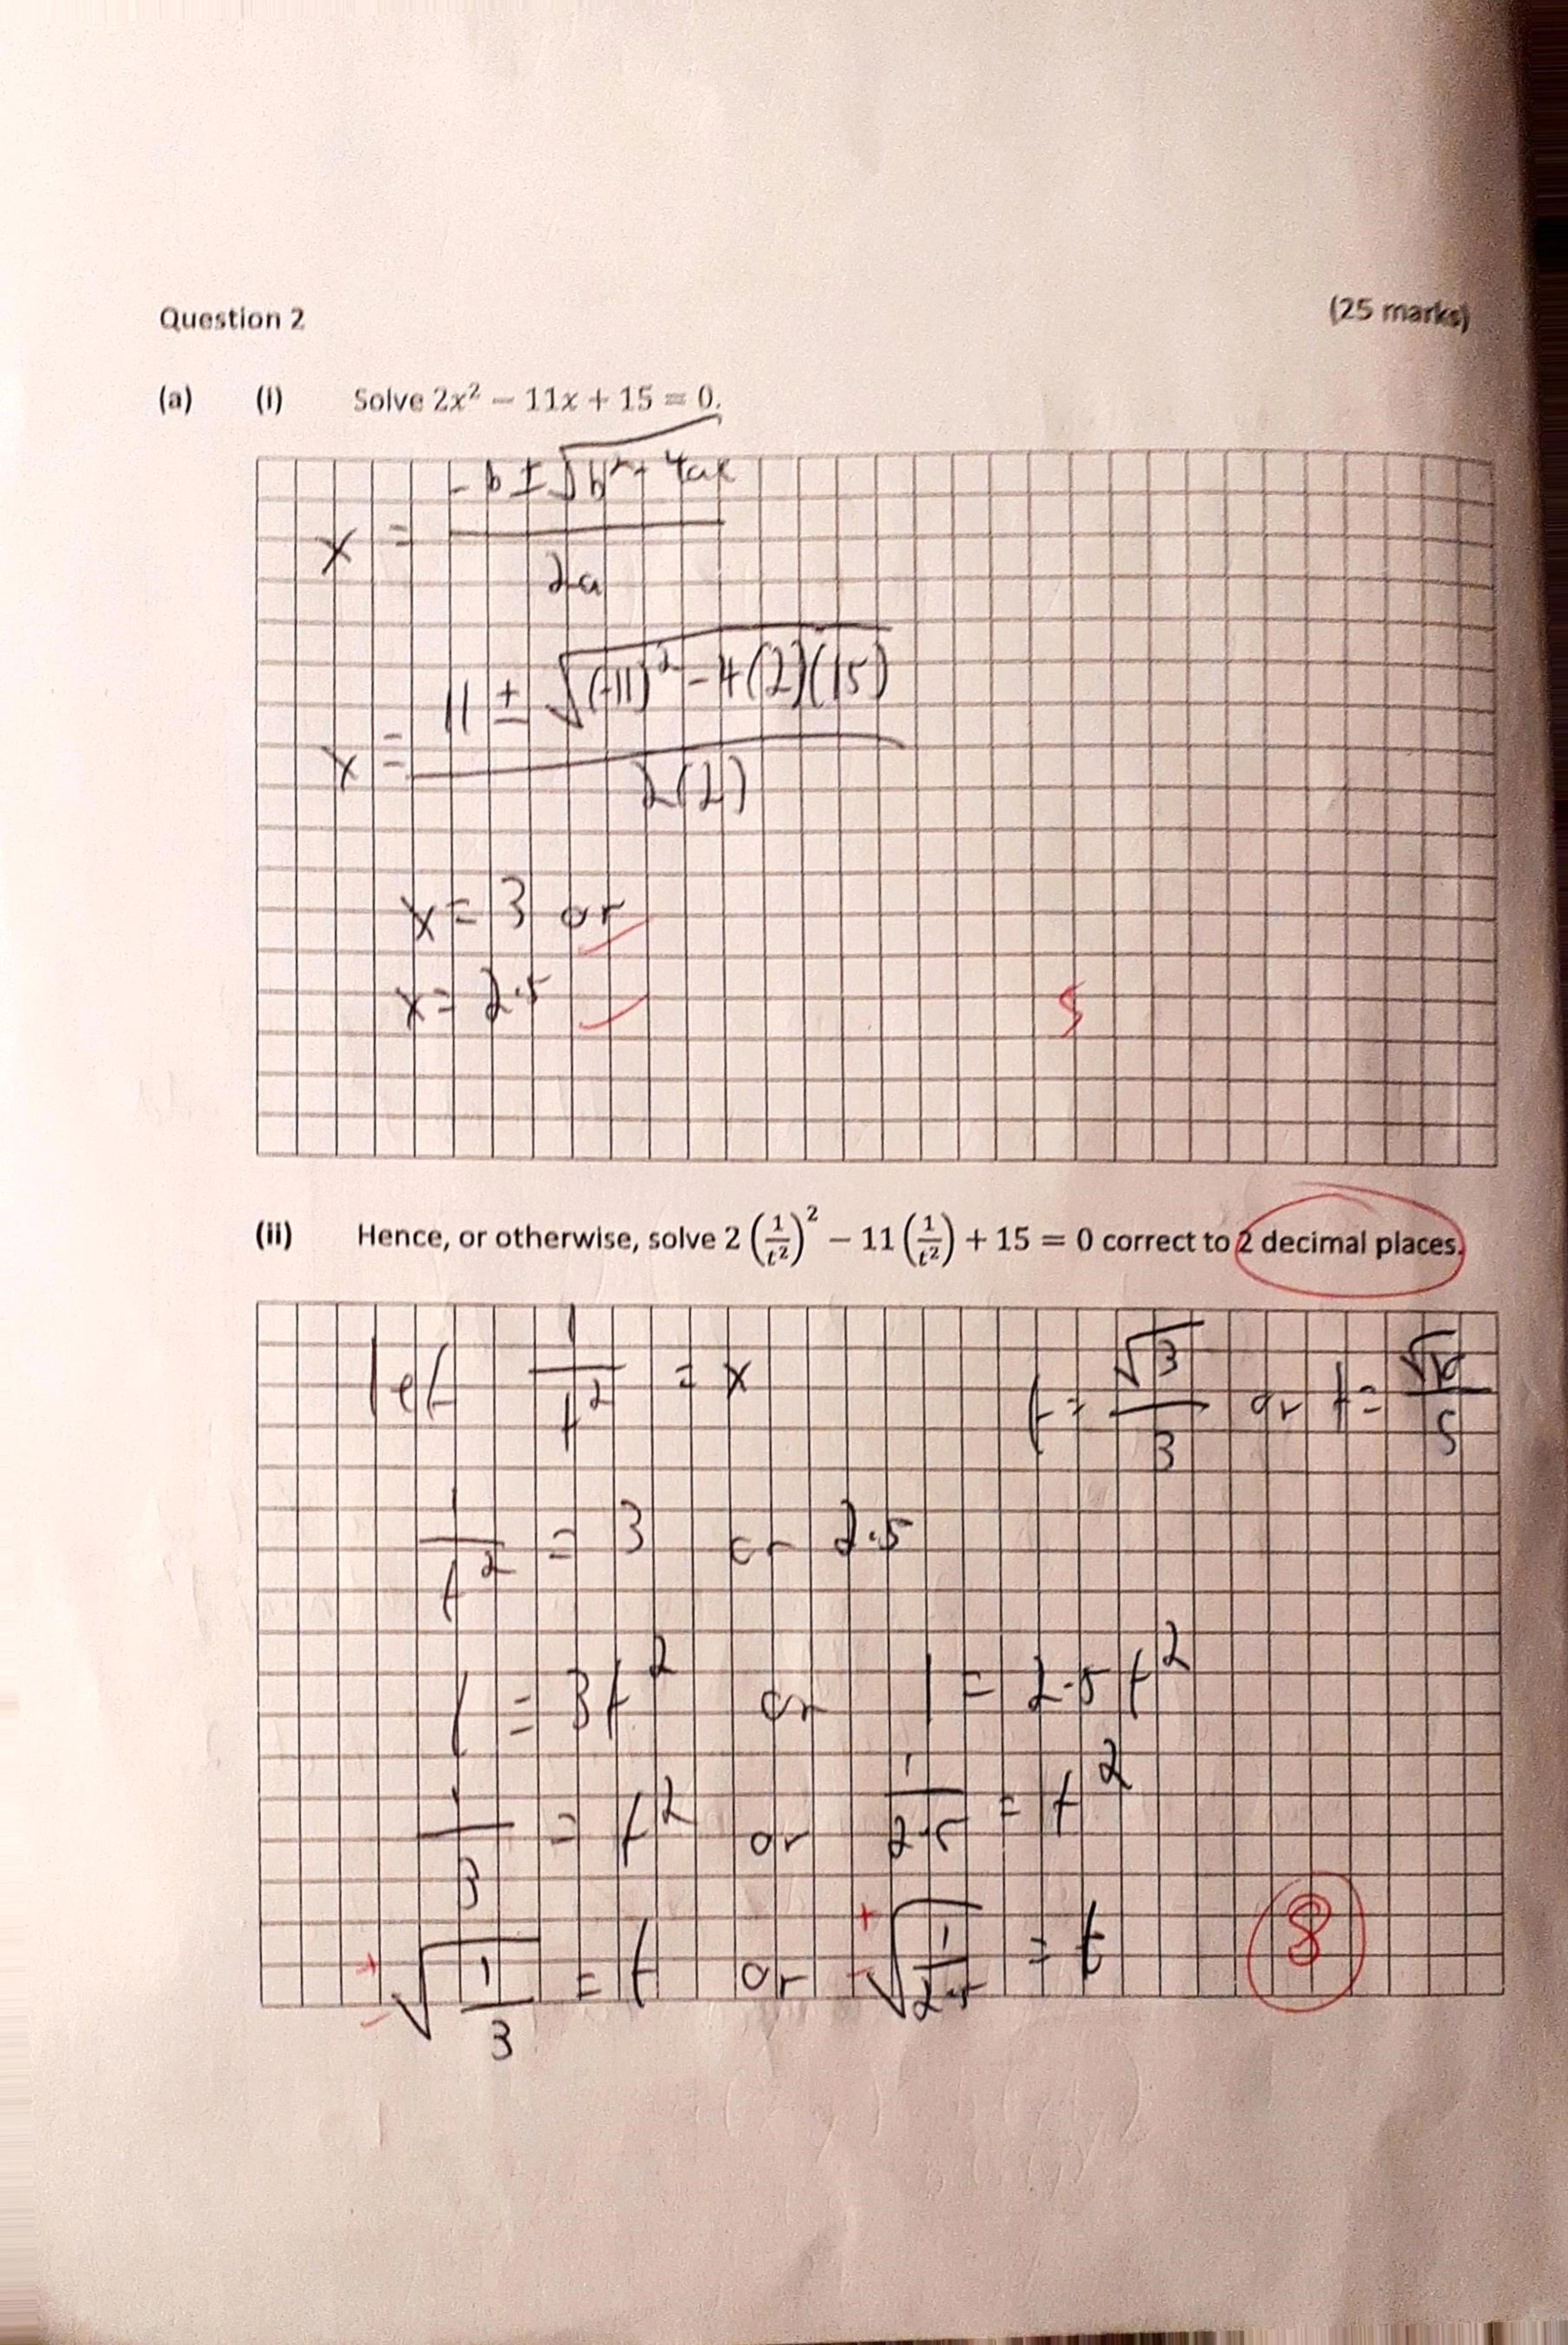 Question 2 (25 marks)
(a) (i) Solve 2x² − 11x + 15 = 0.
x = (-b ± √(b² - 4ac)) / 2a
x = (11 ± √((-11)² - 4(2)(15))) / 2(2)
x = 3 or
x = 2.5
5
(ii) Hence, or otherwise, solve 2(1/t²)² − 11(1/t²) + 15 = 0 correct to 2 decimal places.
let 1/t² = x
t = √3/3 or t = √10/5
1/t² = 3 or 2.5
1 = 3t² or 1 = 2.5t²
1/3 = t² or 1/2.5 = t²
±√(1/3) = t or ±√(1/2.5) = t
8